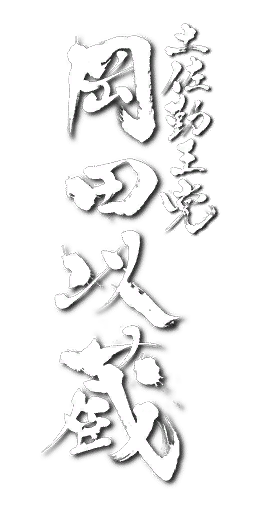 土佐勤王党
岡田以蔵